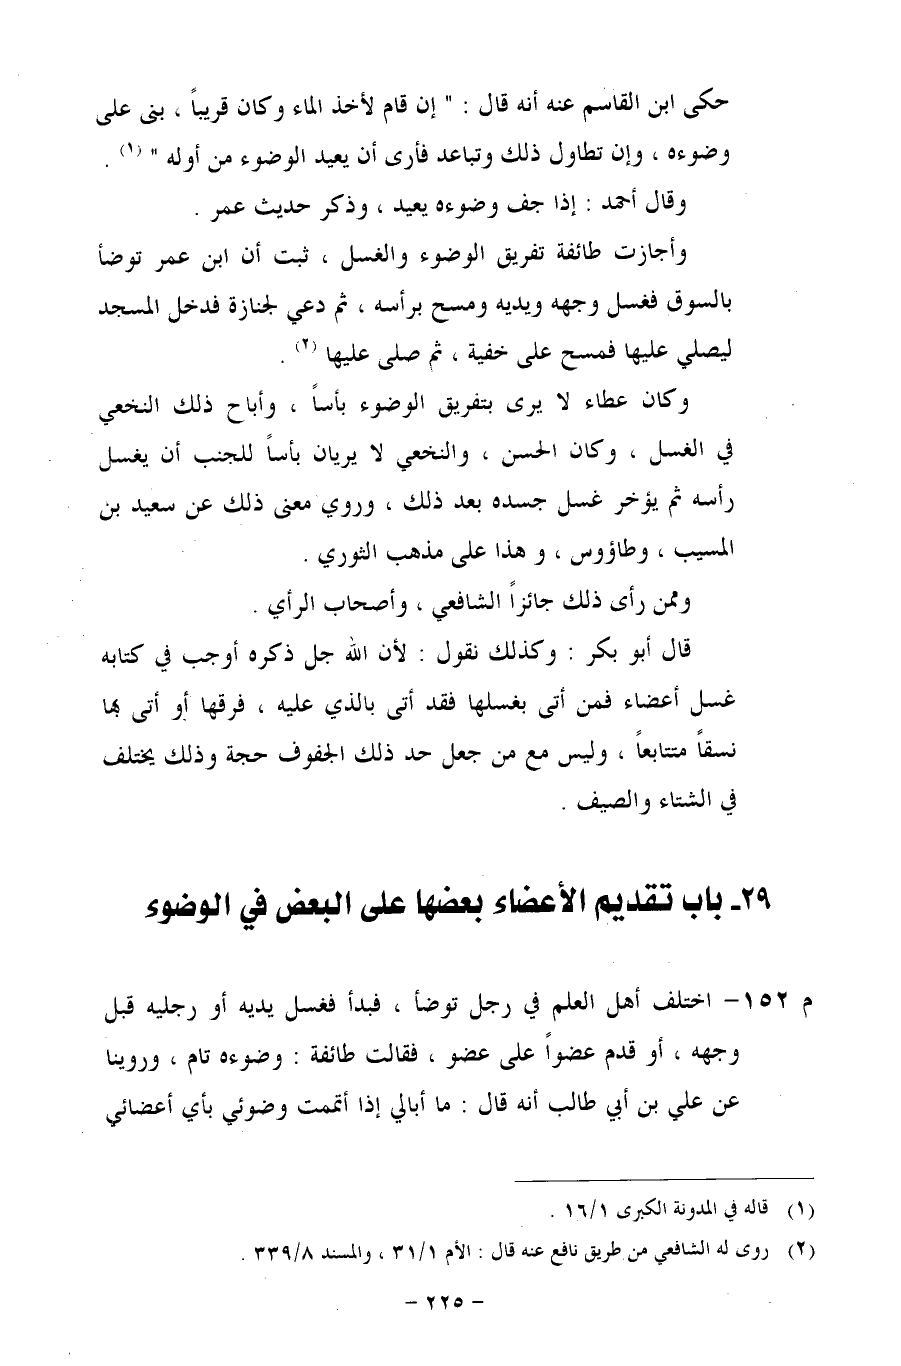 حكى ابن القاسم عنه أنه قال : " إن قام لأخذ الماء وكان قريباً ، بنى على
وضوءه ، وإن تطاول ذلك وتباعد فأرى أن يعيد الوضوء من أوله " (١) .
وقال أحمد : إذا جف وضوءه يعيد ، وذكر حديث عمر .
وأجازت طائفة تفريق الوضوء والغسل ، ثبت أن ابن عمر توضأ
بالسوق فغسل وجهه ويديه ومسح برأسه ، ثم دعي لجنازة فدخل المسجد
ليصلي عليها فمسح على خفية ، ثم صلى عليها (٢) .
وكان عطاء لا يرى بتفريق الوضوء بأساً ، وأباح ذلك النخعي
في الغسل ، وكان الحسن ، والنخعي لا يريان بأساً للجنب أن يغسل
رأسه ثم يؤخر غسل جسده بعد ذلك ، وروي معنى ذلك عن سعيد بن
المسيب ، وطاؤوس ، و هذا على مذهب الثوري .
وممن رأى ذلك جائزاً الشافعي ، وأصحاب الرأي .
قال أبو بكر : وكذلك نقول : لأن الله جل ذكره أوجب في كتابه
غسل أعضاء فمن أتى بغسلها فقد أتى بالذي عليه ، فرقها أو أتى بها
نسقاً متتابعاً ، وليس مع من جعل حد ذلك الجفوف حجة وذلك يختلف
في الشتاء والصيف .
٢٩ـ باب تقديم الأعضاء بعضها على البعض في الوضوء
م ١٥٢ – اختلف أهل العلم في رجل توضأ ، فبدأ فغسل يديه أو رجليه قبل
وجهه ، أو قدم عضواً على عضو ، فقالت طائفة : وضوءه تام ، وروينا
عن علي بن أبي طالب أنه قال : ما أبالي إذا أتممت وضوئي بأي أعضائي
(١) قاله في المدونة الكبرى ١٦/١ .
(٢) روى له الشافعي من طريق نافع عنه قال : الأم ٣١/١ ، والمسند ٣٣٩/٨ .
– ٢٢٥ –